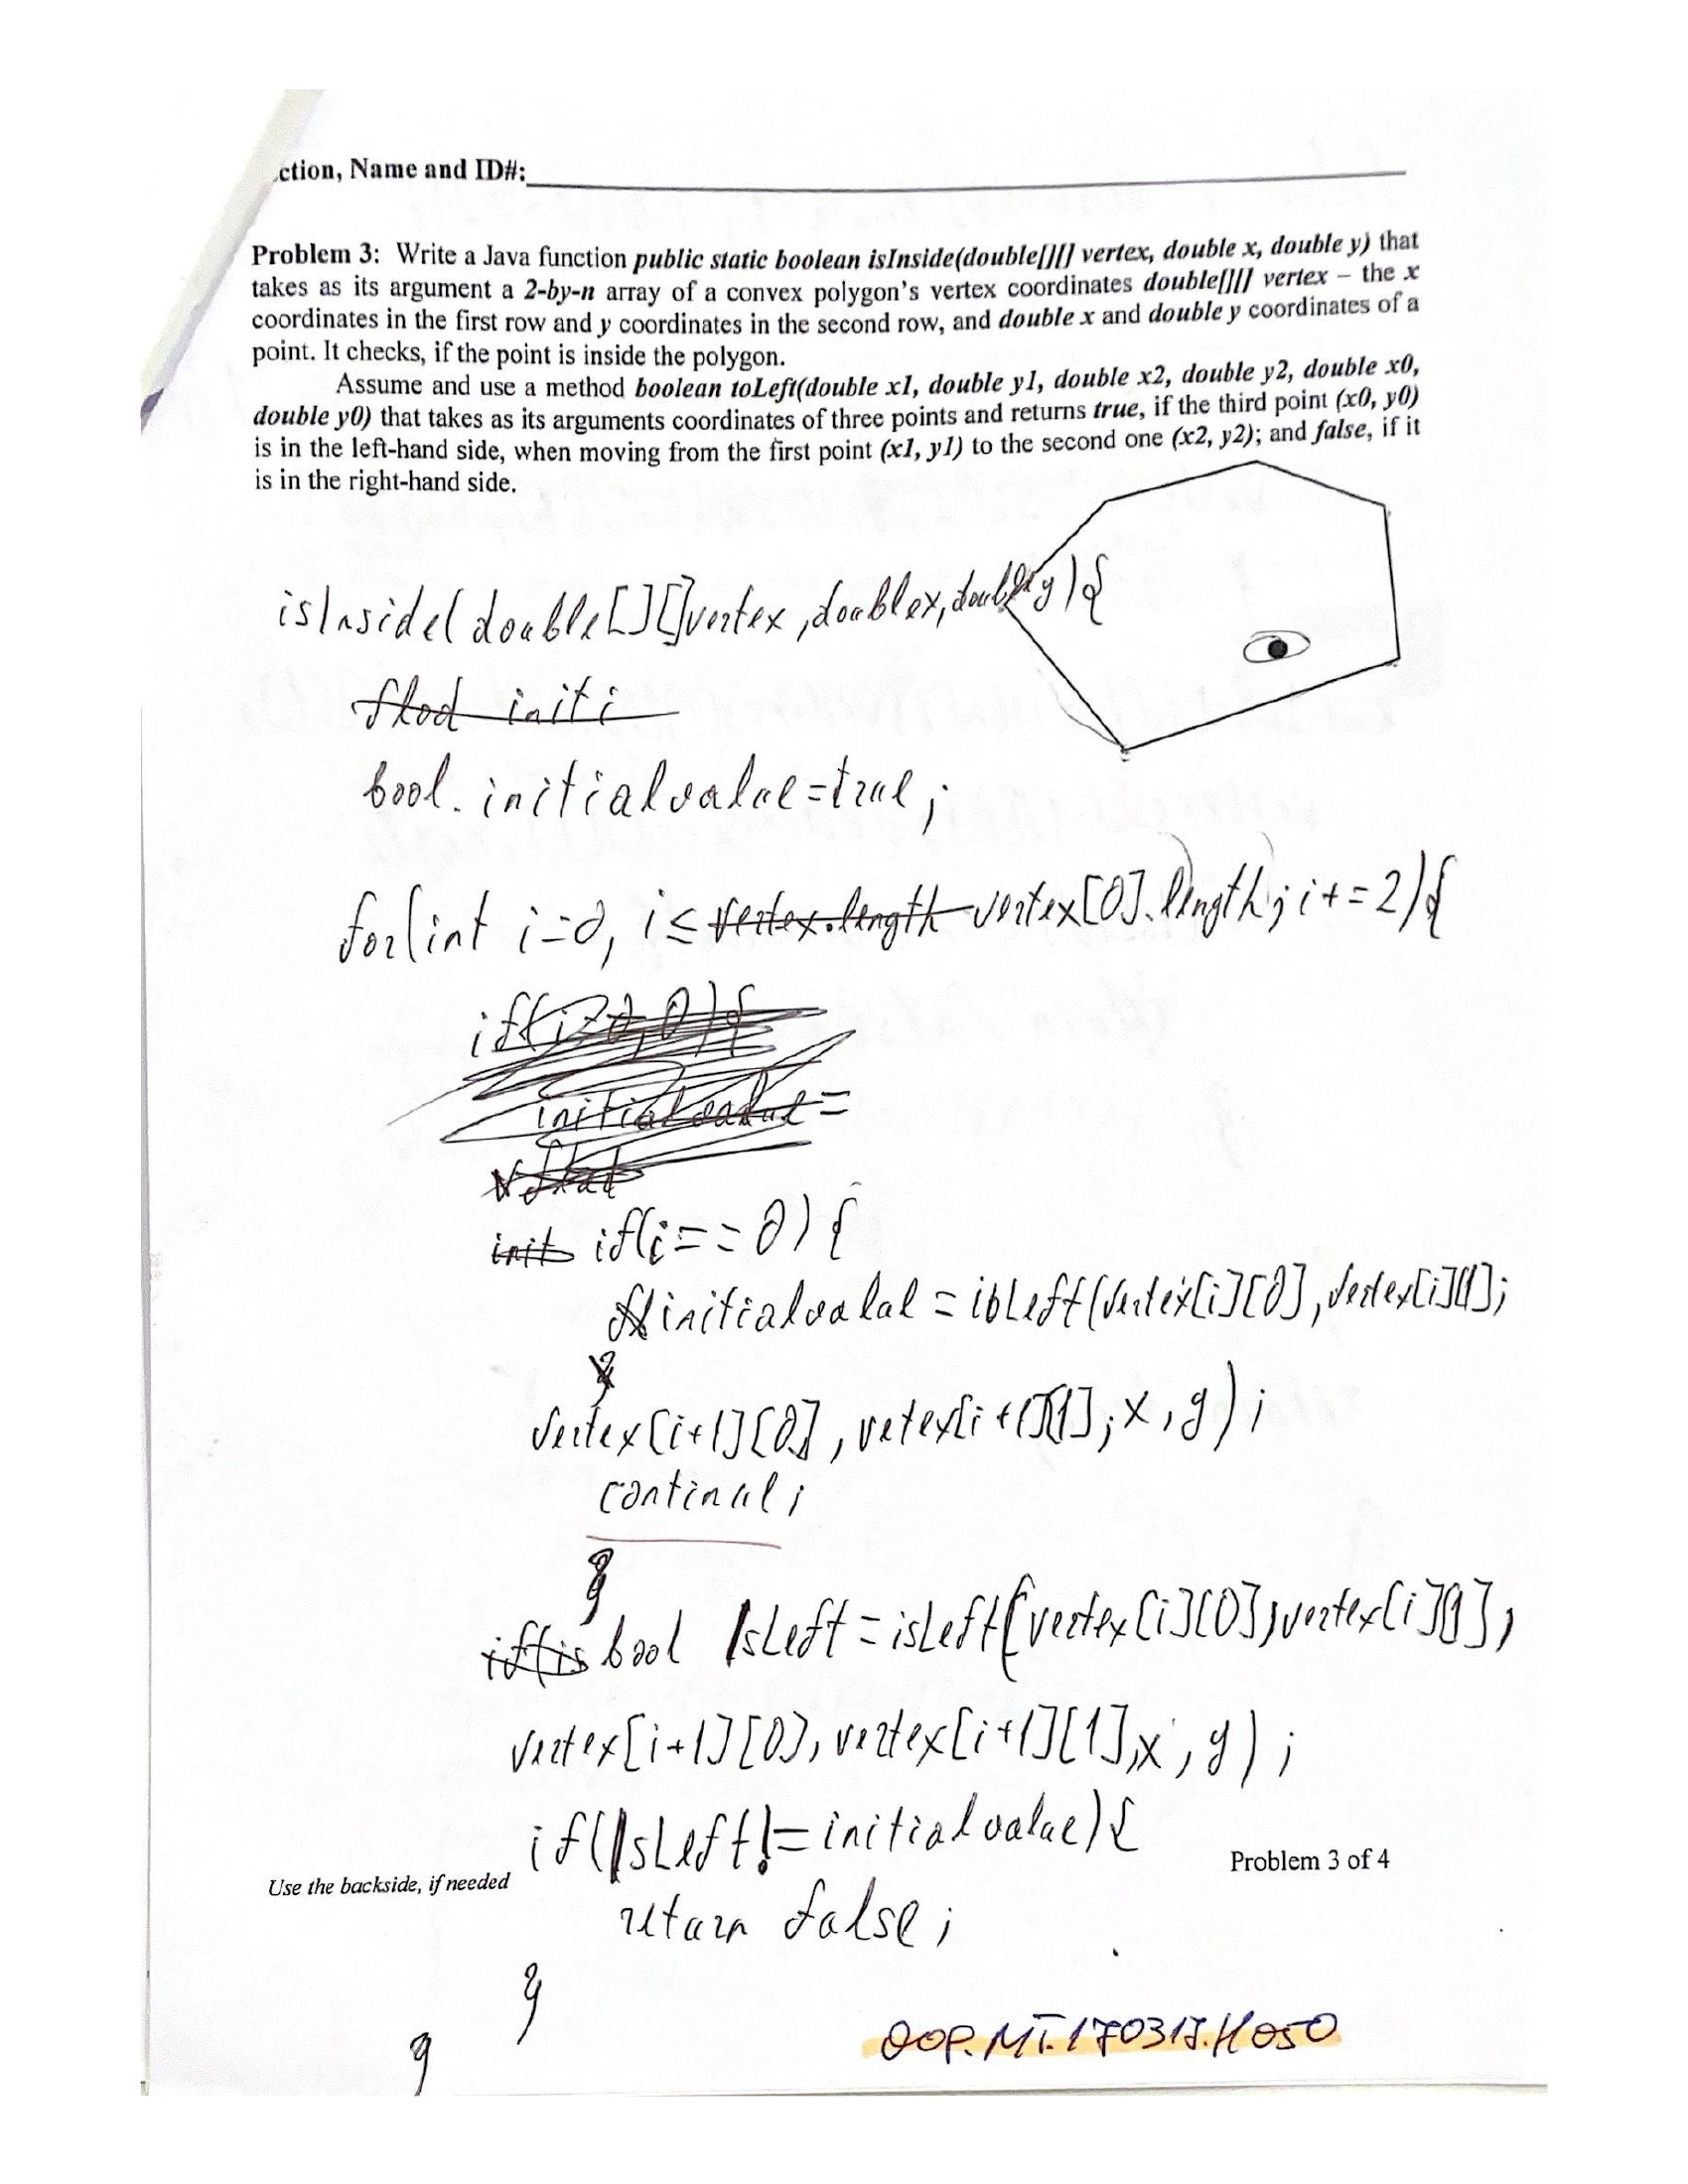 ction, Name and ID#:
Problem 3: Write a Java function public static boolean isInside(double[][] vertex, double x, double y) that
takes as its argument a 2-by-n array of a convex polygon's vertex coordinates double[][] vertex – the x
coordinates in the first row and y coordinates in the second row, and double x and double y coordinates of a
point. It checks, if the point is inside the polygon.
Assume and use a method boolean toLeft(double x1, double y1, double x2, double y2, double x0,
double y0) that takes as its arguments coordinates of three points and returns true, if the third point (x0, y0)
is in the left-hand side, when moving from the first point (x1, y1) to the second one (x2, y2); and false, if it
is in the right-hand side.
isInside(double[][]vertex, doublex, double y){
flod initi
bool. initialvalue=true;
for(int i=0, i≤ vertex.length vertex[0].length; i+=2){
if(i
initialvalue=
init if(i==0){
initialvalue = isLeft(vertex[i][0], vertex[i][1];
vertex[i+1][0], vetex[i+1][1]; x, y);
continue;
}
if(is bool IsLeft = isLeft(vertex[i][0], vertex[i][1],
vertex[i+1][0], vertex[i+1][1], x, y);
if(IsLeft != initialvalue){
Use the backside, if needed
Problem 3 of 4
return false;
}
}
OOP.MT.170317.H050